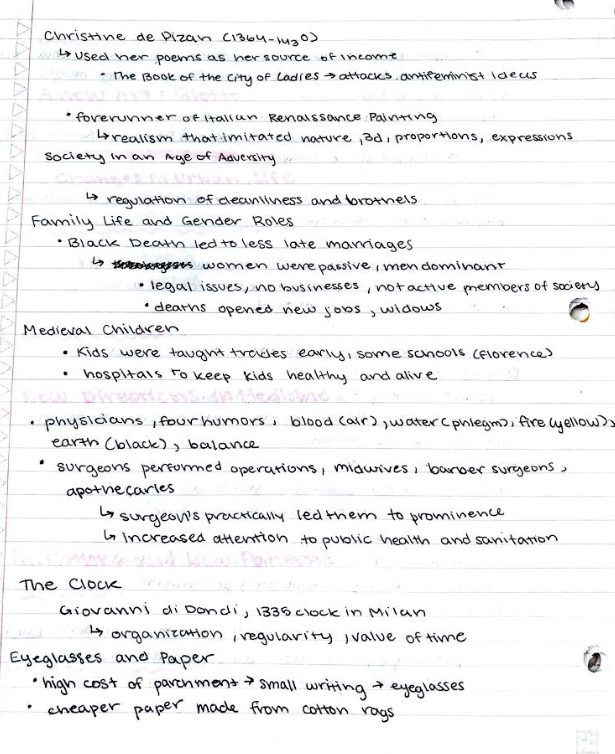 Christine de Pizan (1364-1430)
↳ Used her poems as her source of income
• The Book of the City of Ladies → attacks antifeminist ideas
A New Art: Giotto
• forerunner of Italian Renaissance Painting
↳ realism that imitated nature, 3d, proportions, expressions
Society in an Age of Adversity
Changes in Urban Life
↳ regulation of cleanliness and brothels
Family Life and Gender Roles
• Black Death led to less late marriages
↳ women were passive, men dominant
• legal issues, no businesses, not active members of society
• deaths opened new jobs, widows
Medieval Children
• Kids were taught trades early, some schools (Florence)
• hospitals to keep kids healthy and alive
New Directions in Medicine
• physicians, four humors, blood (air), water (phlegm), fire (yellow),
earth (black), balance
• surgeons performed operations, midwives, barber surgeons,
apothecaries
↳ surgeon's practically led them to prominence
↳ Increased attention to public health and sanitation
and New Patterns
The Clock
Giovanni di Dondi, 1335 clock in Milan
↳ organization, regularity, value of time
Eyeglasses and Paper
• high cost of parchment → small writing → eyeglasses
• cheaper paper made from cotton rags